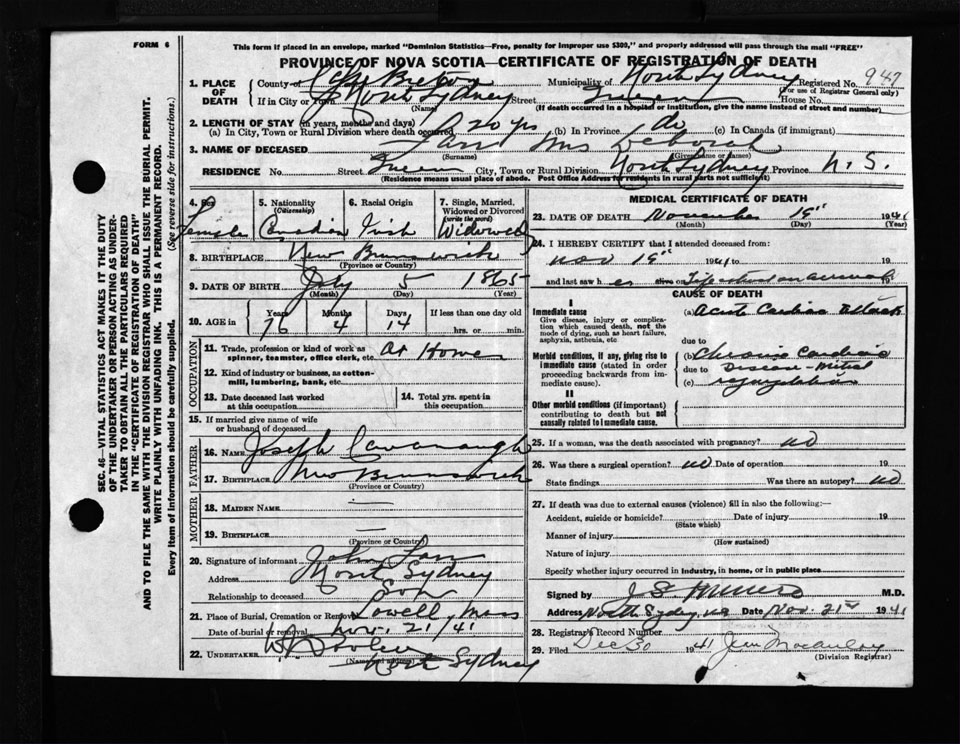 FORM 6
This form if placed in an envelope, marked "Dominion Statistics—Free, penalty for improper use $300," and properly addressed will pass through the mail "FREE"
PROVINCE OF NOVA SCOTIA—CERTIFICATE OF REGISTRATION OF DEATH
SEC. 46—VITAL STATISTICS ACT MAKES IT THE DUTY
OF THE UNDERTAKER OR PERSON ACTING AS UNDER-
TAKER TO OBTAIN ALL THE PARTICULARS REQUIRED
IN THE "CERTIFICATE OF REGISTRATION OF DEATH"
AND TO FILE THE SAME WITH THE DIVISION REGISTRAR WHO SHALL ISSUE THE BURIAL PERMIT.
WRITE PLAINLY WITH UNFADING INK. THIS IS A PERMANENT RECORD.
Every item of information should be carefully supplied. (See reverse side for instructions.)
1. PLACE OF DEATH
County of Cape Breton Municipality of North Sydney Registered No. 947
(For use of Registrar General only)
If in City or Town North Sydney Street House No.
(Name) (If death occurred in a hospital or institution, give the name instead of street and number)
2. LENGTH OF STAY (in years, months and days)
(a) In City, Town or Rural Division where death occurred 20 yrs (b) In Province do (c) In Canada (if immigrant)
3. NAME OF DECEASED Mrs Deborah
(Surname) (Given name or names)
RESIDENCE No. Street City, Town or Rural Division North Sydney Province N. S.
(Residence means usual place of abode. Post Office Address for residents in rural parts not sufficient)
4. Sex Female
5. Nationality (Citizenship) Canadian
6. Racial Origin Irish
7. Single, Married, Widowed or Divorced (write the word) Widowed
8. BIRTHPLACE New Brunswick
(Province or Country)
9. DATE OF BIRTH July 5 1865
(Month) (Day) (Year)
10. AGE in Years 76 Months 4 Days 14 If less than one day
hrs. or min.
OCCUPATION
11. Trade, profession or kind of work as spinner, teamster, office clerk, etc. At Home
12. Kind of industry or business, as cotton-mill, lumbering, bank, etc.
13. Date deceased last worked at this occupation
14. Total yrs. spent in this occupation
15. If married give name of wife or husband of deceased
FATHER
16. NAME Joseph Cavanaugh
17. BIRTHPLACE New Brunswick
(Province or Country)
MOTHER
18. MAIDEN NAME —
19. BIRTHPLACE —
(Province or Country)
20. Signature of informant John
Address North Sydney
Relationship to deceased Son
21. Place of Burial, Cremation or Removal Lowell, Mass
Date of burial or removal Nov. 21/41
22. UNDERTAKER
(Name and address) North Sydney
MEDICAL CERTIFICATE OF DEATH
23. DATE OF DEATH November 19th 1941
(Month) (Day) (Year)
24. I HEREBY CERTIFY that I attended deceased from:
Nov 19th 1941 to 19
and last saw h er alive on Life extinct on arrival 19
CAUSE OF DEATH
I
Immediate cause
Give disease, injury or complication which caused death, not the mode of dying, such as heart failure, asphyxia, asthenia, etc
(a) Acute Cardiac attack
due to
Morbid conditions, if any, giving rise to immediate cause (stated in order proceeding backwards from immediate cause).
(b) Chronic Cardiac
due to Disease - Mitral
(c) regurgitation
II
Other morbid conditions (if important) contributing to death but not causally related to immediate cause.
25. If a woman, was the death associated with pregnancy? no
26. Was there a surgical operation? no Date of operation 19
State findings Was there an autopsy? no
27. If death was due to external causes (violence) fill in also the following:—
Accident, suicide or homicide? Date of injury 19
(State which)
Manner of injury
(How sustained)
Nature of injury
Specify whether injury occurred in industry, in home, or in public place
Signed by M.D.
Address North Sydney, NS Date Nov. 21st 1941
28. Registrar's Record Number
29. Filed Dec 30 1941
(Division Registrar)